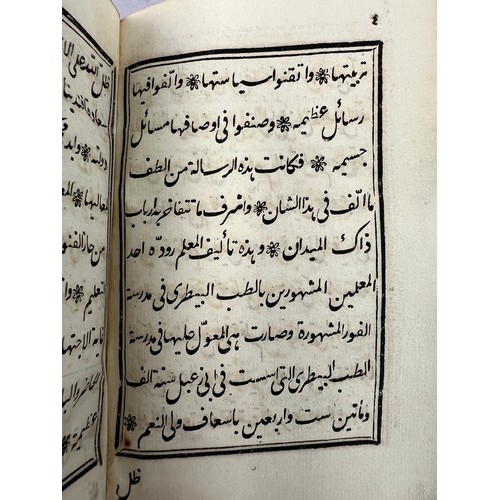 ٤
تربيتها ❋ واتقنوا سياستها ❋ واتفوا فيها
رسائل عظيمه ❋ وصنفوا فى اوصافها مسائل
جسيمه ❋ فكانت هذه الرسالة من الطف
ما الف فى هذا الشان ❋ واشرف ما تتفاخر به ارباب
ذاك الميدان ❋ وهذه تأليف المعلم روده احد
المعلمين المشهورين بالطب البيطرى فى مدرسة
الفور المشهورة وصارت هى المعول عليها فى مدرسة
الطب البيطرى التى اسست فى ابى زعبل سنة الف
ومأتين ست واربعين باسعاف ولى النعم ❋
ظل
ظل الله على الا
دولته ❋
معاليها ❋
من حاز الفنو
التعليم ❋
غاية الاجتها
عظيمة ❋